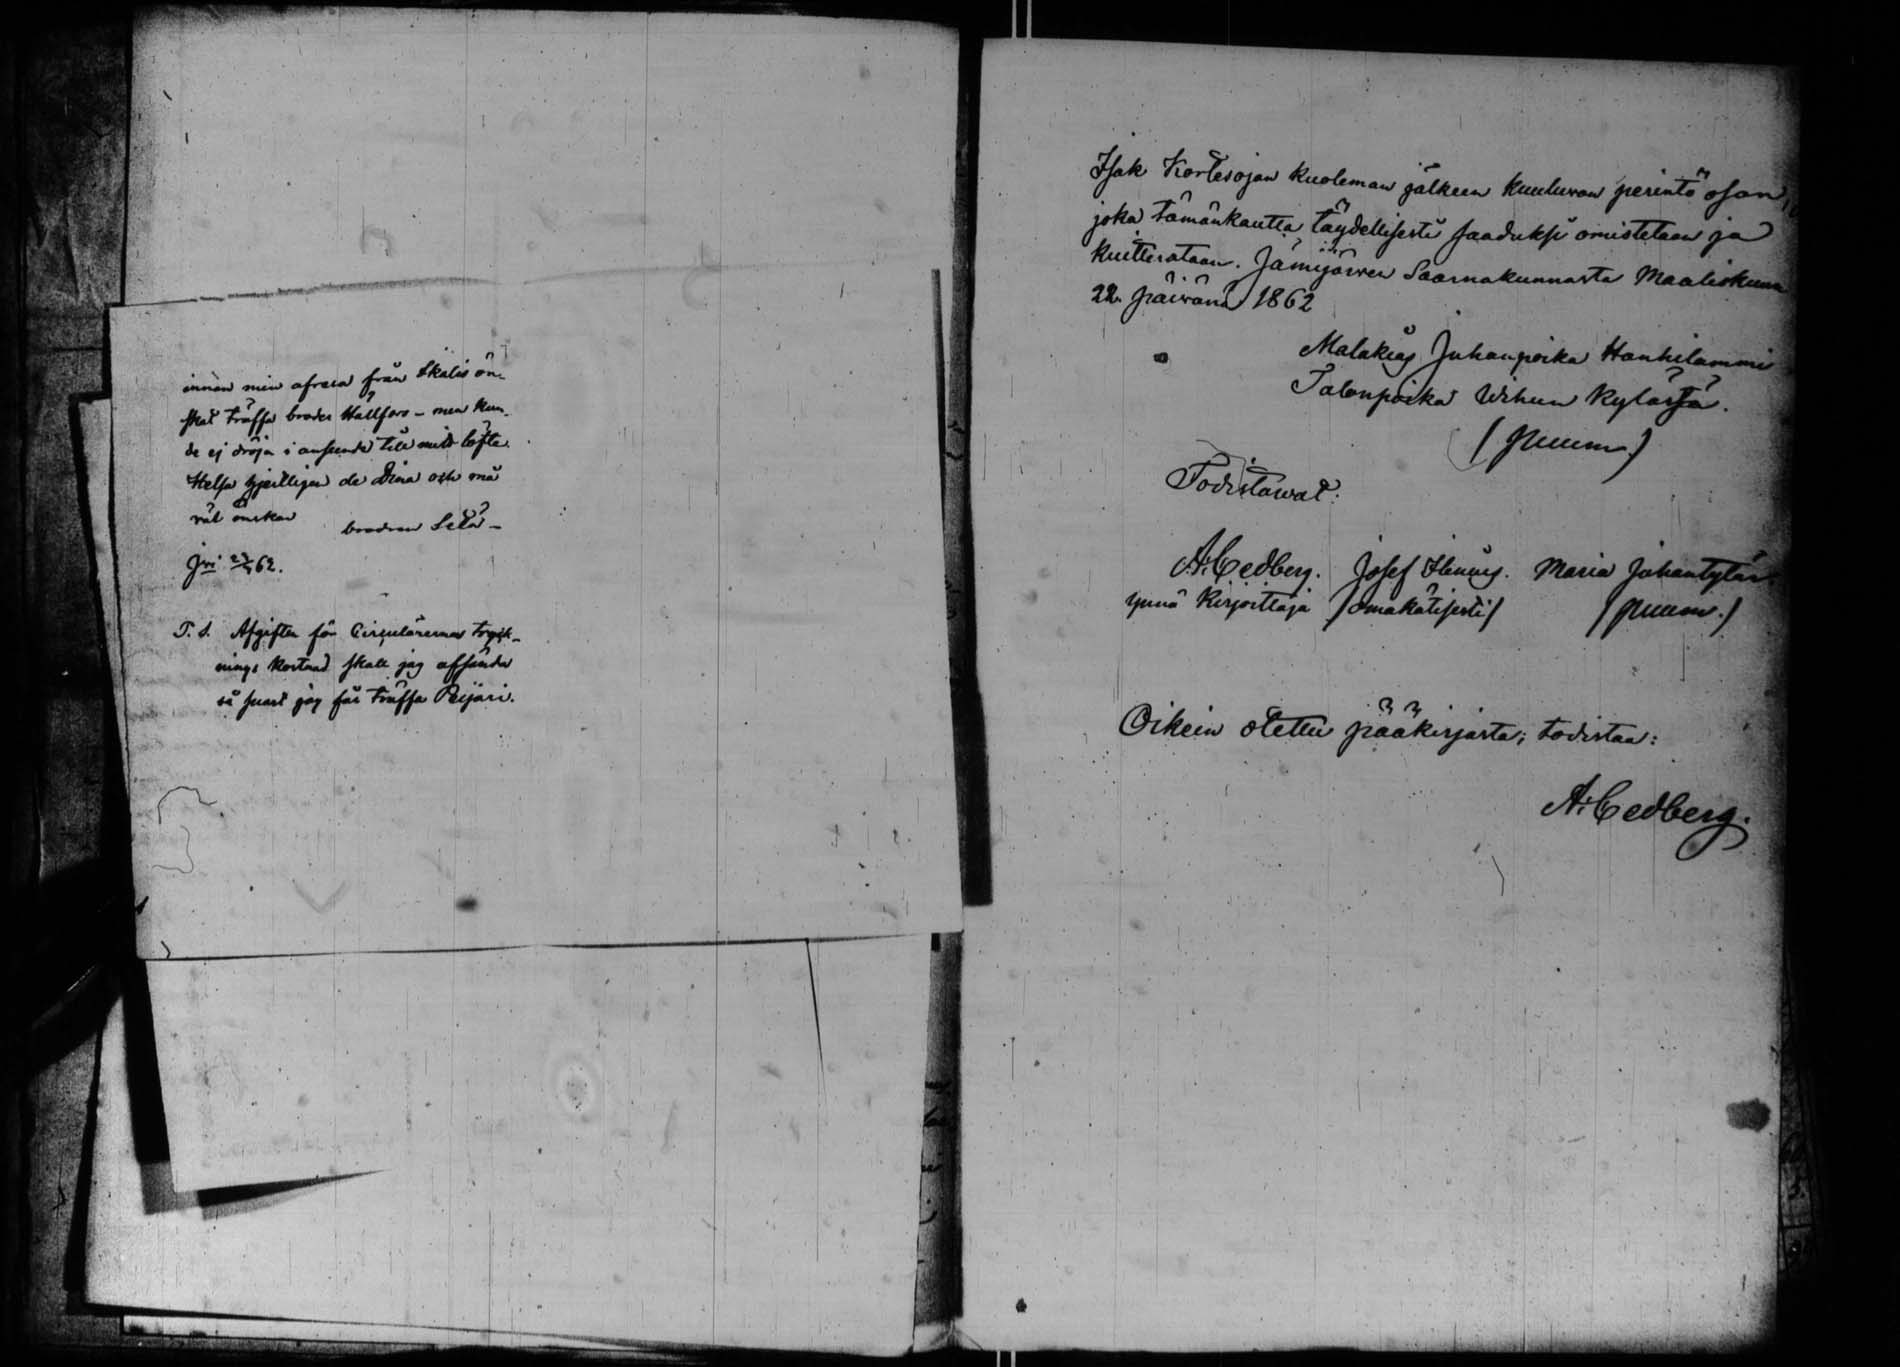 innan min afresa från Skalis ön-
skat träffa broder Hallfors - men kun-
de ej dröja i anseende till mitt löfte.
Helsa hjertligen de Dina och må
väl önskar
brodren Setä-
Jvi 23/4 62.
P. S. Afgiften för Circulärernas tryck-
nings kostnad skall jag afsända
så snart jag får träffa Reijari.
Isak Kortesojan kuoleman jälkeen kuuluvan perintö osan,
joka tämänkautta täydellisesti saaduksi omistetaan ja
kuitterataan. Jämijärven Saarnakunnasta Maaliskuun
22. päivänä 1862
Malakias Juhanpoika Hanhilammi
Talonpoika Vihun kylästä.
(puum.)
Todistavat:
A. Cedberg. Josef Maria Juhantytär.
ynnä kirjoittaja /omakätisesti/ /puum./
Oikein otettu pääkirjasta; todistaa:
A. Cedberg.